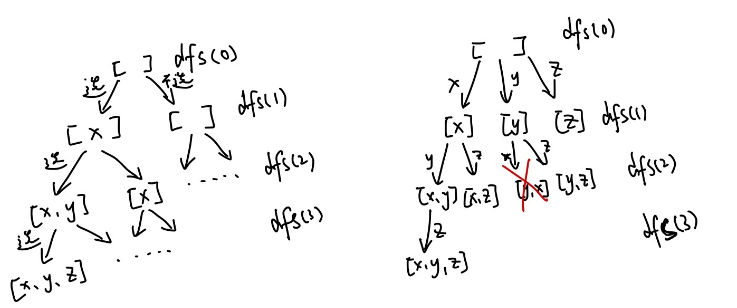 [ ] dfs(0)
选 不选
[x] [ ] dfs(1)
选
[x,y] [x] ..... dfs(2)
选
[x,y,z] ..... dfs(3)
[ ] dfs(0)
x y z
[x] [y] [z] dfs(1)
y z x z
[x,y] [x,z] [y,x] [y,z] dfs(2)
z
[x,y,z] dfs(3)